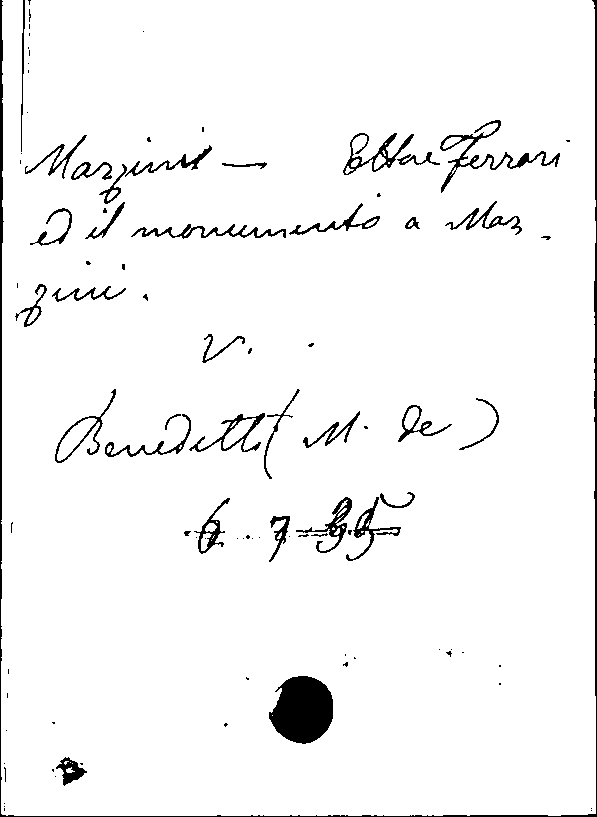 Mazzini — Ettore Ferrari
ed il monumento a Maz-
zini.
V.
Benedetti (M. de)